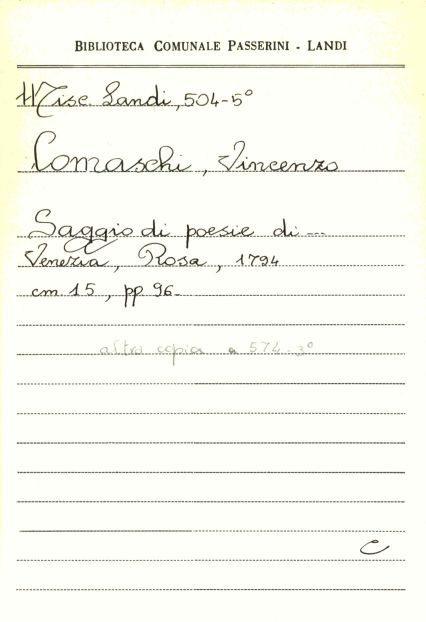 BIBLIOTECA COMUNALE PASSERINI - LANDI
Misc. Landi, 504-5°
Comaschi, Vincenzo
Saggio di poesie di ---
Venezia, Rosa, 1794
cm 15, pp 96-
altra copia a 574-3°
C